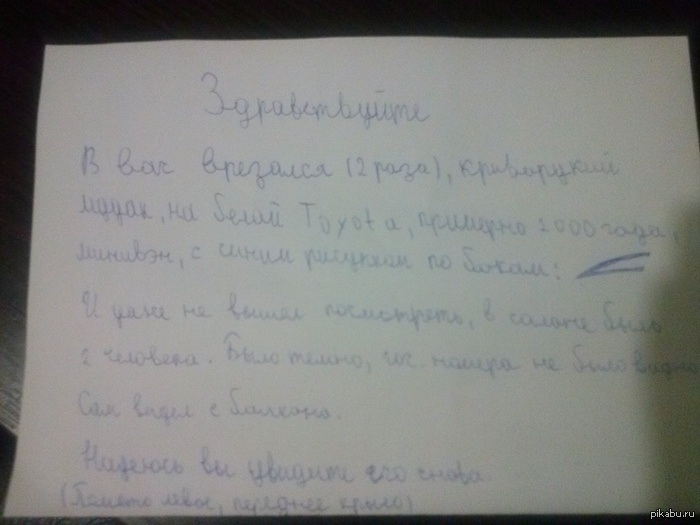 Здравствуйте
В вас врезался (2 раза), криворукий
мудак, на белой Toyota, примерно 2000 года,
минивэн, с синим рисунком по бокам:
И даже не вышел посмотреть, в салоне было
2 человека. Было темно, гос. номера не было видно
Сам видел с балкона.
Надеюсь вы увидите его снова.
(Помято левое, переднее крыло)
pikabu.ru